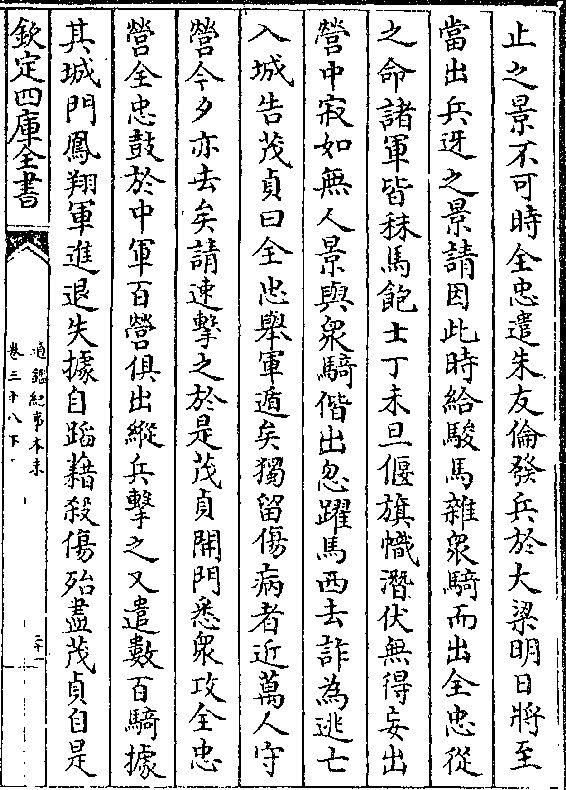 止之景不可時全忠遣朱友倫發兵於大梁明日將至
當出兵迓之景請因此時給駿馬雜衆騎而出全忠從
之命諸軍皆秣馬飽士丁未旦偃旗幟潛伏無得妄出
營中寂如無人景與衆騎偕出忽躍馬西去詐為逃亡
入城告茂貞曰全忠舉軍遁矣獨留傷病者近萬人守
營今夕亦去矣請速擊之於是茂貞開門悉衆攻全忠
營全忠鼓於中軍百營俱出縱兵擊之又遣數百騎據
其城門鳳翔軍進退失據自蹈藉殺傷殆盡茂貞自是
欽定四庫全書
通鑑紀事本末
卷三十八下